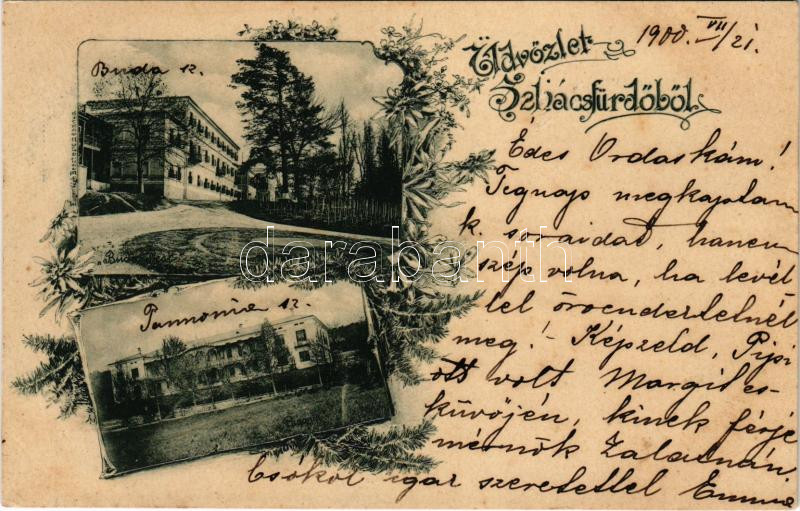 1900. VII/21.
Üdvözlet
Szliácsfürdőböl
Buda sz.
Édes Ordaskám!
Tegnap megkaptam
k. soraidat, hanem
szép volna, ha levél
lel örvendeztetnél
meg! - Képzeld, Pipi
ott volt Margit es-
küvőjén, kinek férje
mérnök Zalatnán.
Csókol igaz szeretettel Emma
Pannonia sz.
darabanth